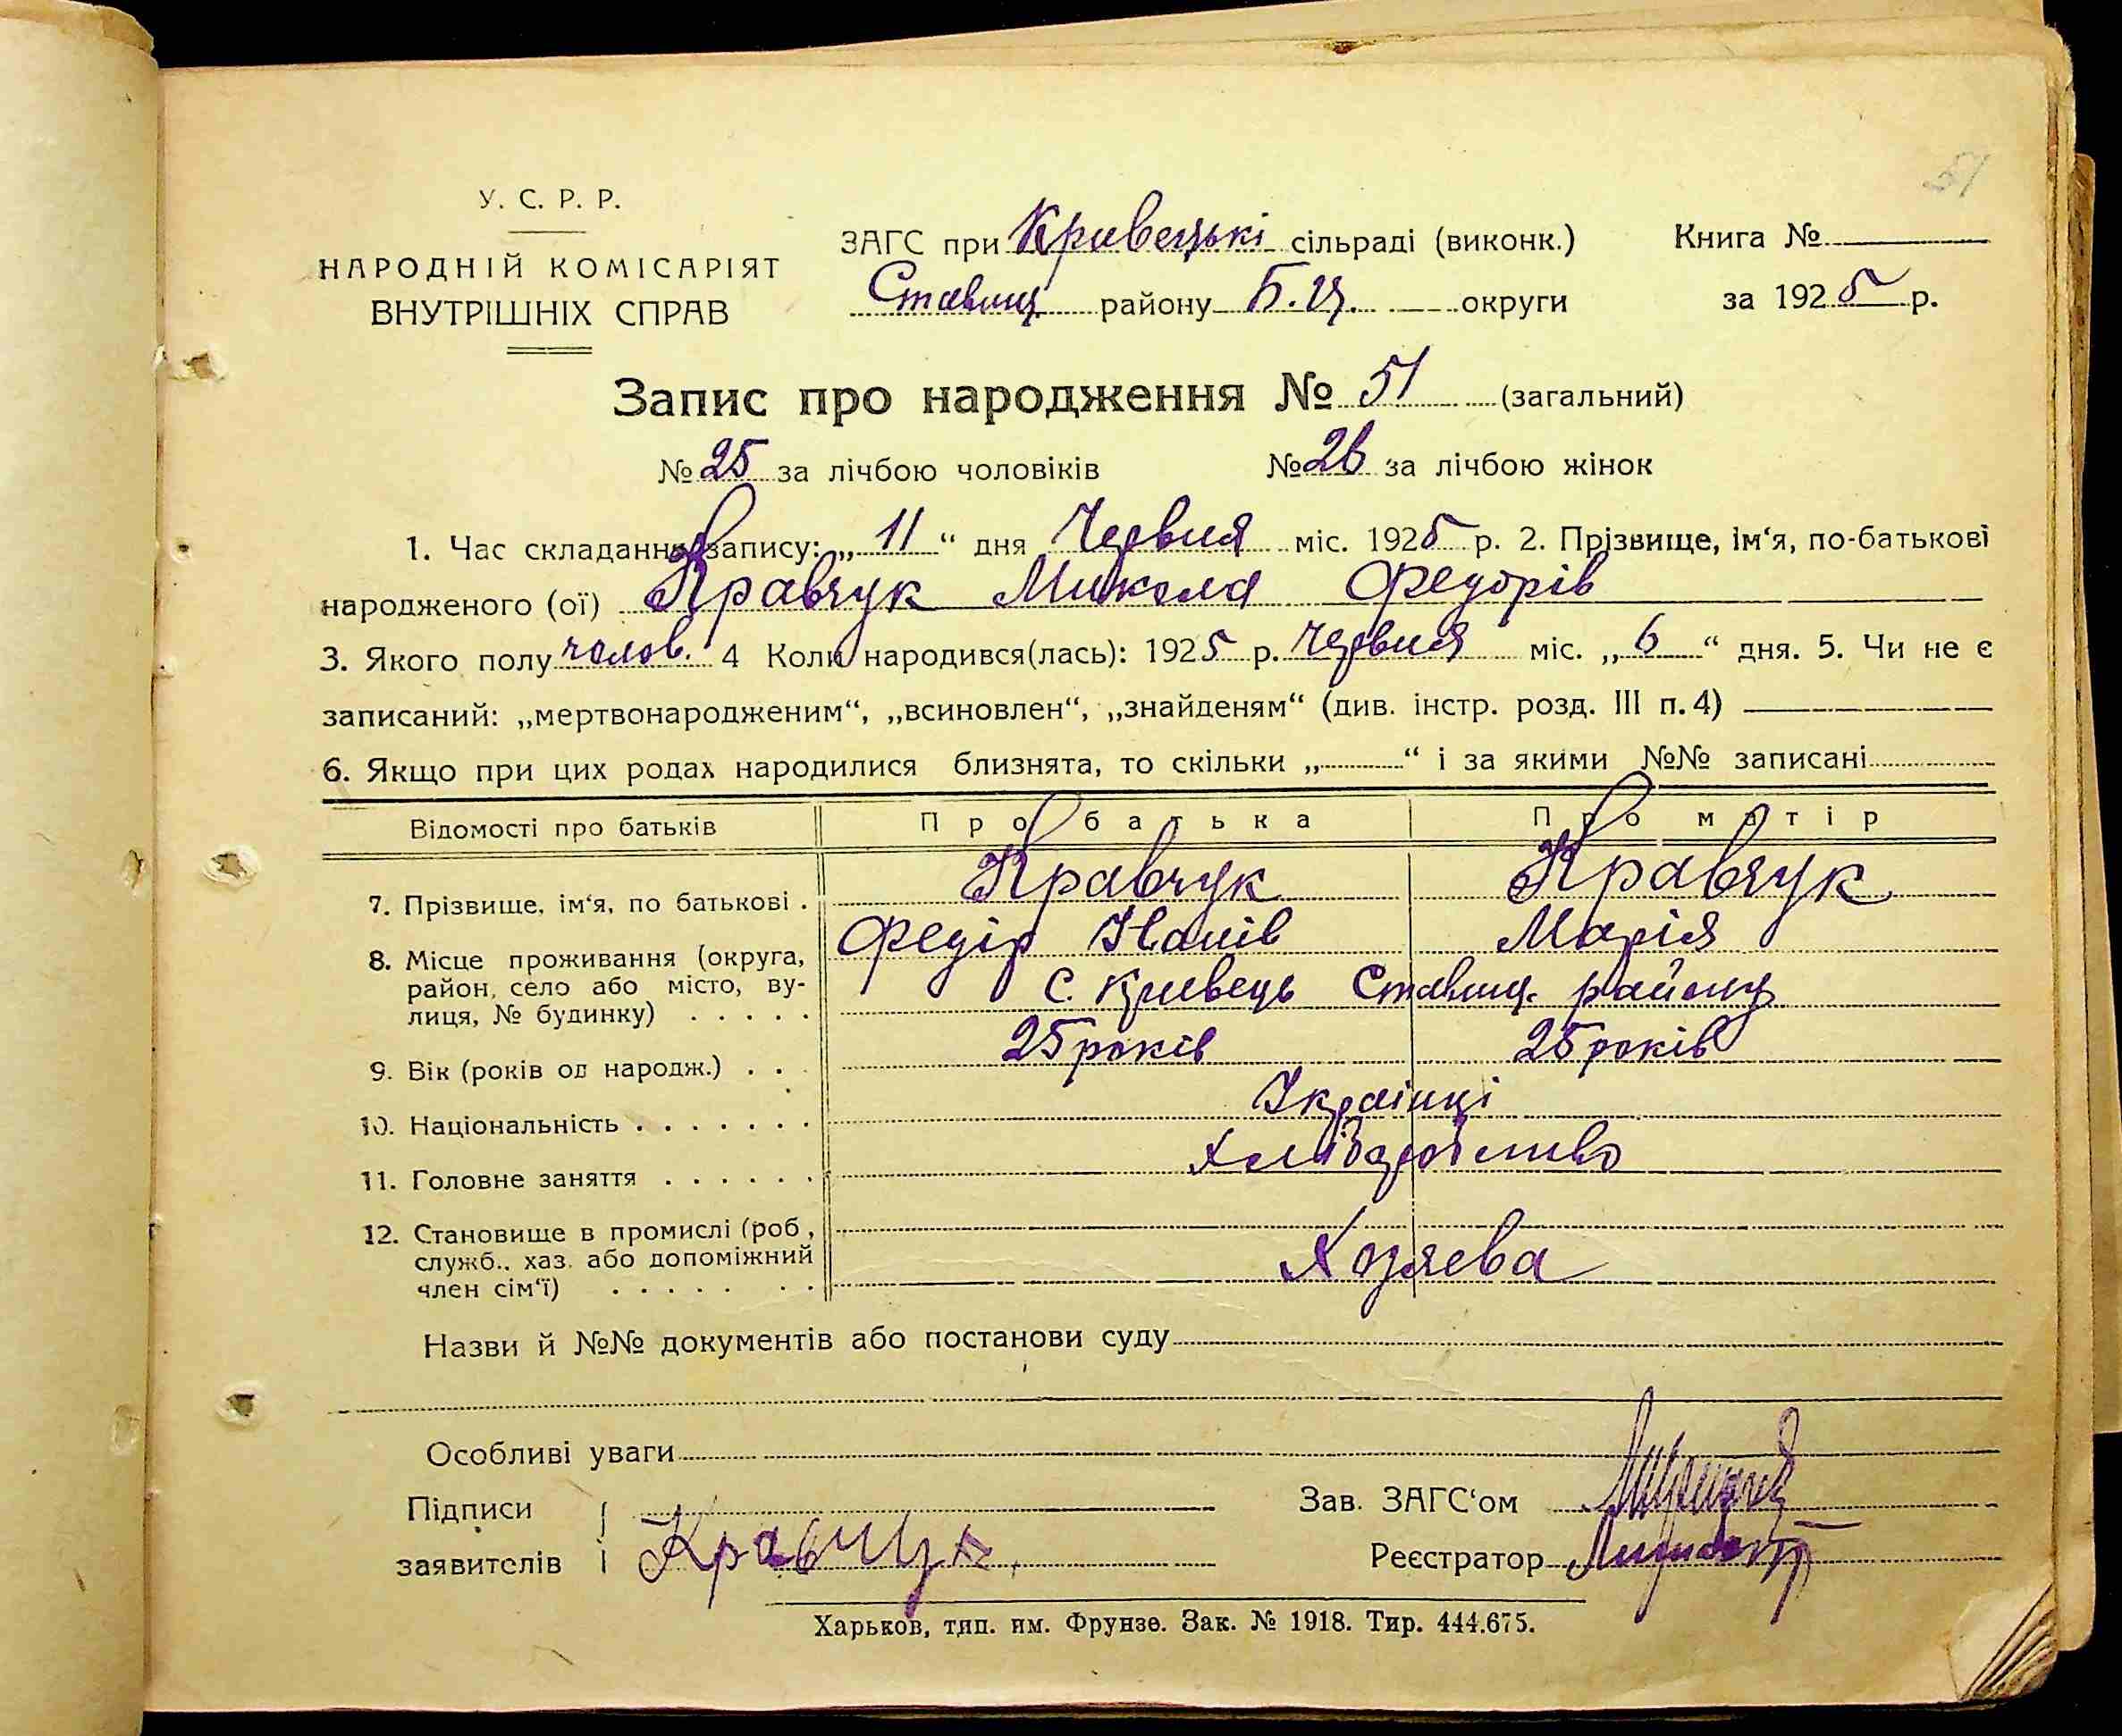 51
У. С. Р. Р.
НАРОДНІЙ КОМІСАРІЯТ
ВНУТРІШНІХ СПРАВ
ЗАГС при Кривецькі сільраді (виконк.)
Ставищ району Б.Ц. округи
Книга №
за 1925 р.
Запис про народження № 51 (загальний)
№ 25 за лічбою чоловіків № 26 за лічбою жінок
1. Час складання запису: „ 11 “ дня Червня міс. 1925 р. 2. Прізвище, ім‘я, по-батькові
народженого (ої) Кравчук Микола Федорів
3. Якого полу чолов. 4 Коли народився(лась): 1925 р. Червня міс. „ 6 “ дня. 5. Чи не є
записаний: „мертвонародженим“, „всиновлен“, „знайденям“ (див. інстр. розд. III п. 4)
6. Якщо при цих родах народилися близнята, то скільки „ “ і за якими №№ записані
Відомості про батьків Про батька Про матір
7. Прізвище, ім‘я, по батькові . Кравчук Кравчук
Федір Іванів Марія
8. Місце проживання (округа,
район, село або місто, ву-
лиця, № будинку) . . . . . с. Кривець Ставищ. району
9. Вік (років од народж.) . . . 25 років 25 років
10. Національність . . . . . . . Українці
11. Головне заняття . . . . . . Хліборобство
12. Становище в промислі (роб,
служб., хаз. або допоміжний
член сім‘ї) . . . . . . . Хозяева
Назви й №№ документів або постанови суду
Особливі уваги
Підписи
заявителів Кравчук
Зав. ЗАГС‘ом
Реєстратор
Харьков, тип. им. Фрунзе. Зак. № 1918. Тир. 444.675.